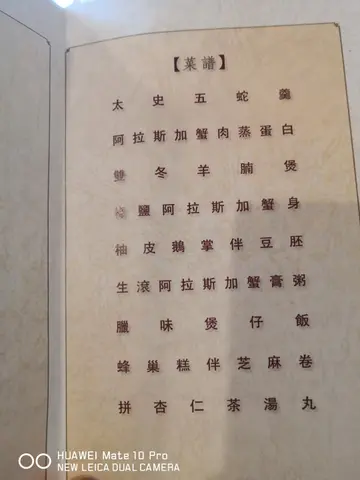 【菜譜】
太史五蛇羹
阿拉斯加蟹肉蒸蛋白
雙冬羊腩煲
鹽阿拉斯加蟹身
柚皮鵝掌伴豆胚
生滾阿拉斯加蟹膏粥
臘味煲仔飯
蜂巢糕伴芝麻卷
拼杏仁茶湯丸
HUAWEI Mate 10 Pro
NEW LEICA DUAL CAMERA